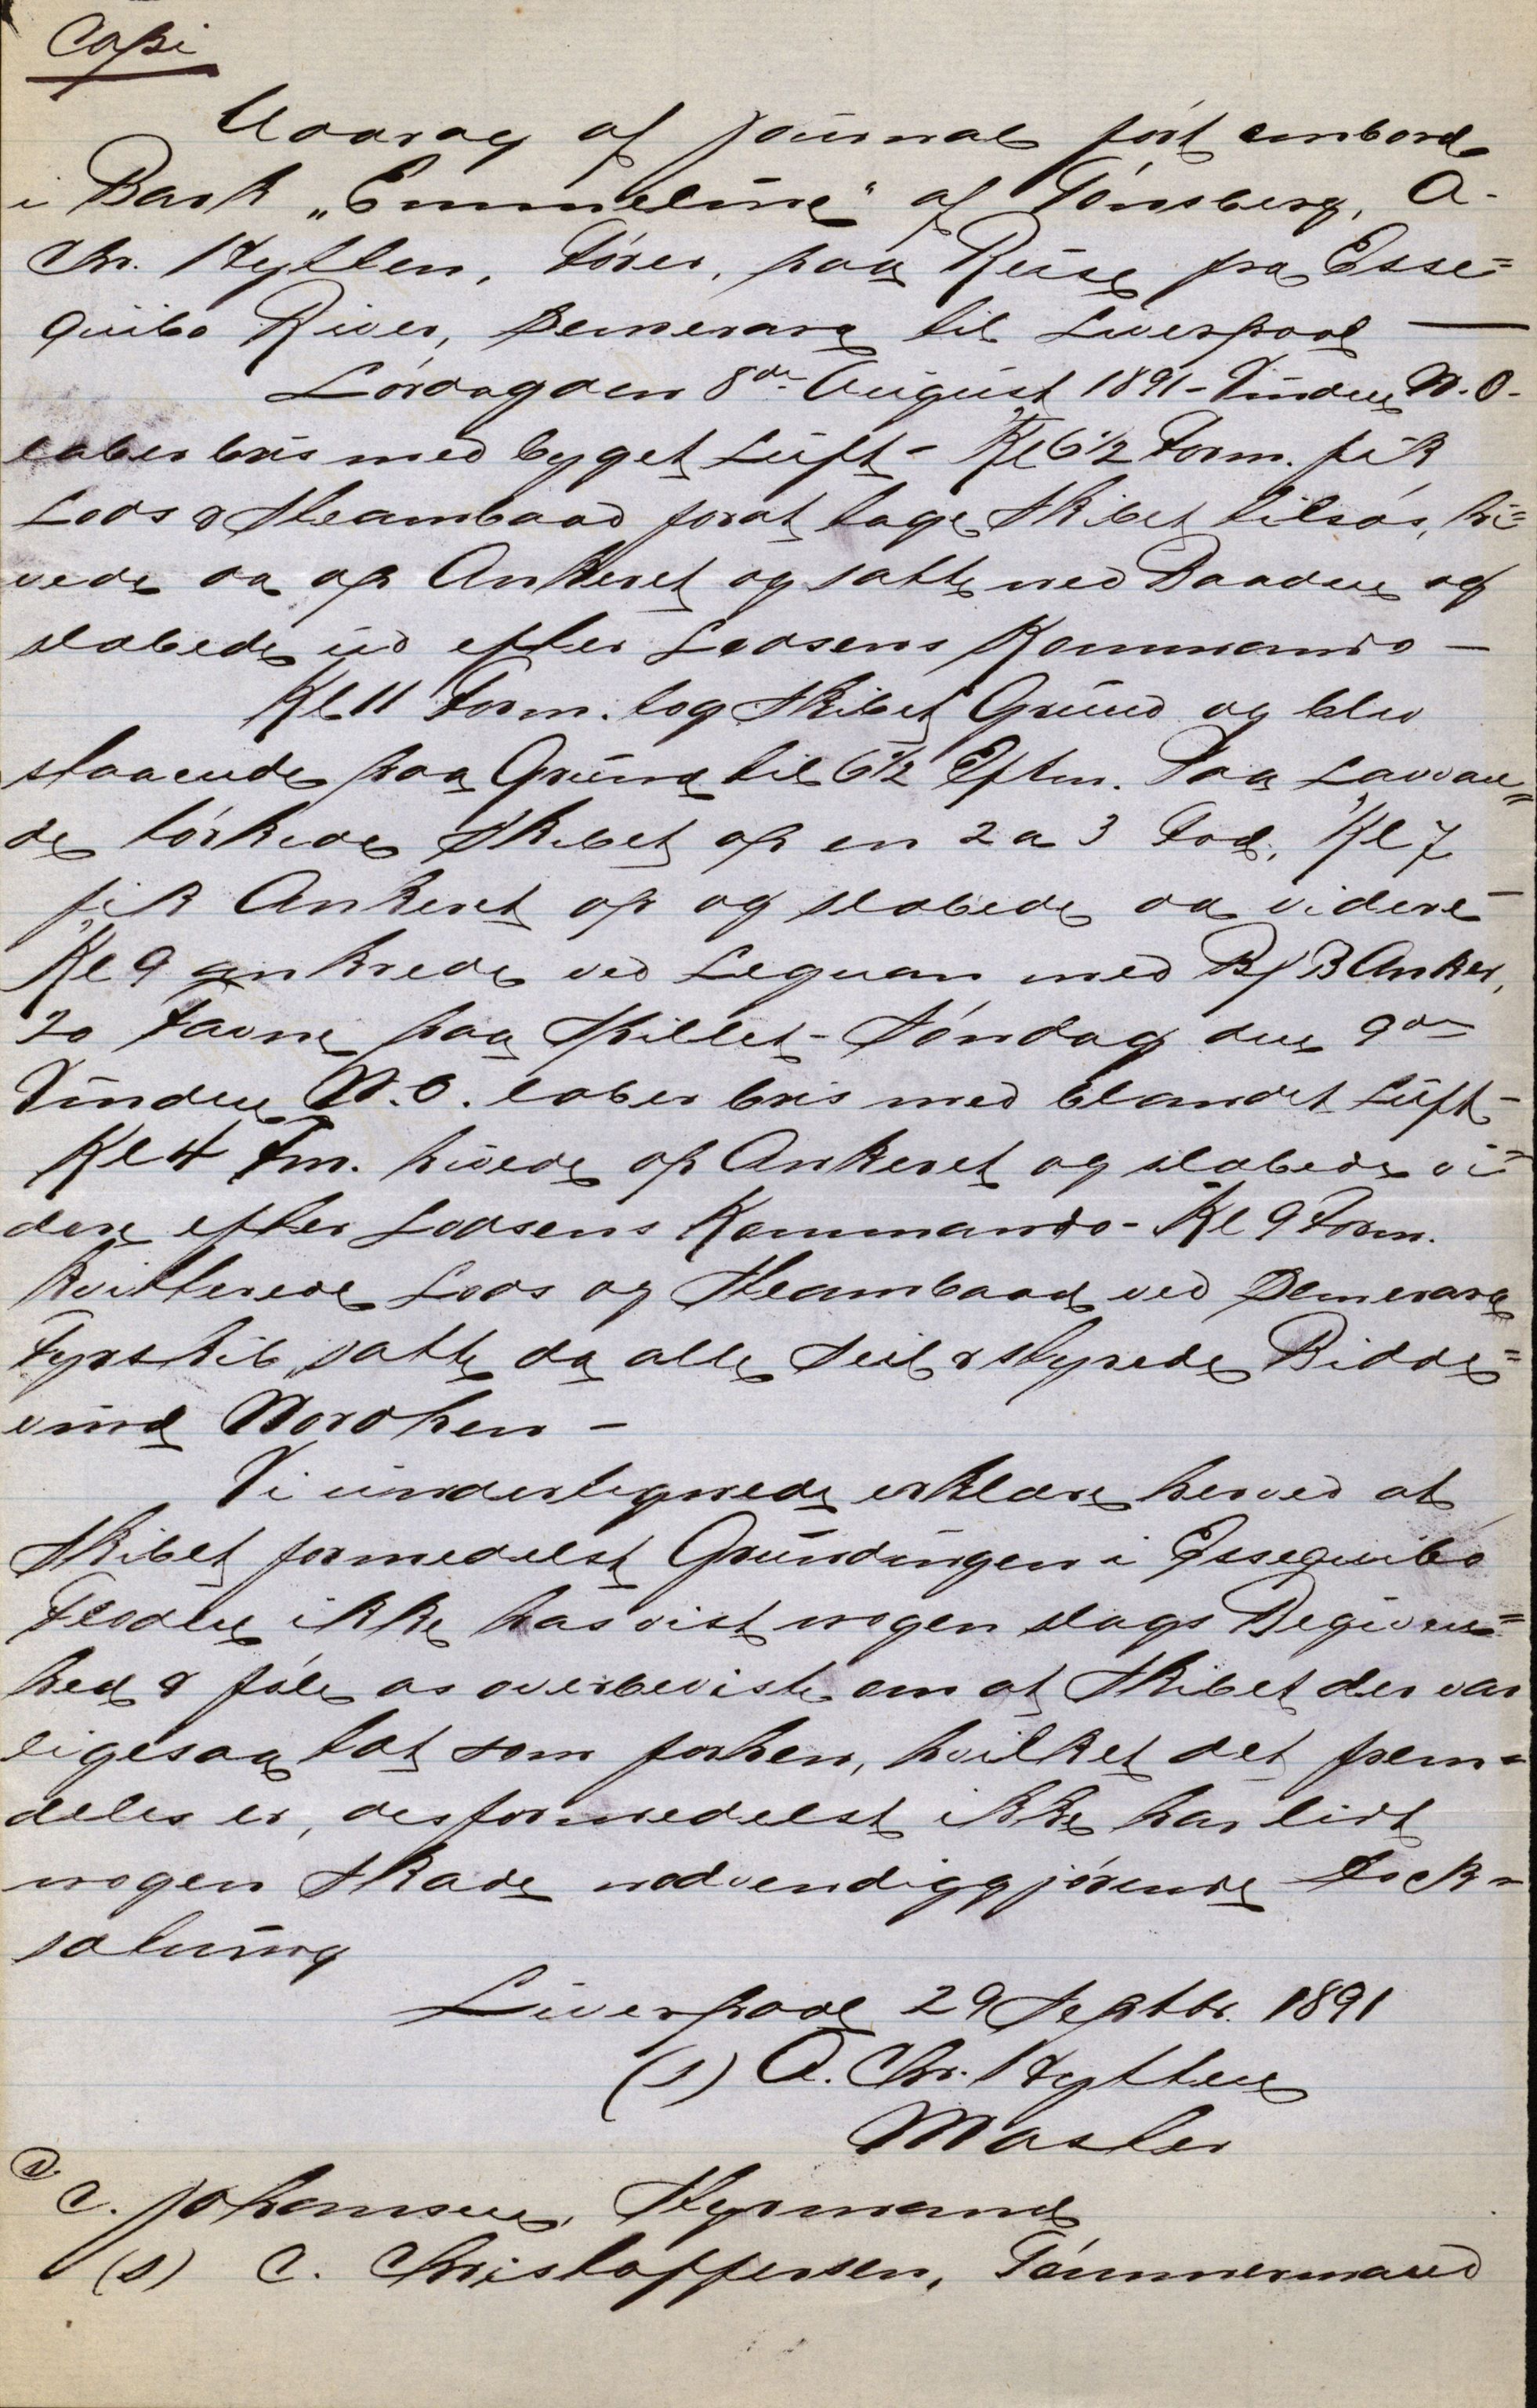 Copi
Uddrag af Journal ført ombord
i Bark „Emmeline" af Tönsberg, A.
Chr. Hytten, Förer, paa Reise fra Esse=
quibo River, Demerara til Liverpool —
Lördag den 8de August 1891 - Vinden N.O.
laber bris med byget Luft - Kl 6 1/2 Form. fik
Lods & Steambaad forat tage Skibet tilsös, hi=
vede da op Ankeret og satte ned Baaden og
slobede ud efter Lodsens Kommando -
Kl 11 Form. tog Skibet Grund og blev
staaende paa Grund til 6 1/2 Eftm. Paa Lavvan=
de törkede Skibet op en 2 a 3 Fod, Kl 7
fik Ankeret op og slobede da videre -
Kl 9 ankrede ved Leguan med B/B Anker,
20 Favne paa Spillet - Söndag den 9de
Vinden N.O. laber bris med blandet Luft -
Kl 4 Fm. hivede op Ankeret og slobede vi=
dere efter Lodsens Kommando - Kl 9 Form.
kvitterede Lods og Steambaad ved Demerara
Fyrskib, satte da alle Seil & styrede Bidde=
vind Nordhen -
Vi undertegnede erklære herved at
Skibet formedelst Grundingen i Essequibo
Floden ikke har vist nogen slags Begiven=
hed & föle os overbeviste om at Skibet der var
ligesaa tæt som forhen, hvilket det frem=
deles er, desformedelst ikke har lidt
nogen Skade nödvendiggjörende Dock=
sætning
Liverpool 29 Septbr. 1891
(s) A. Chr. Hytten
Master
C. Johansen, Styrmand
(s) C. Christoffersen, Tömmermand